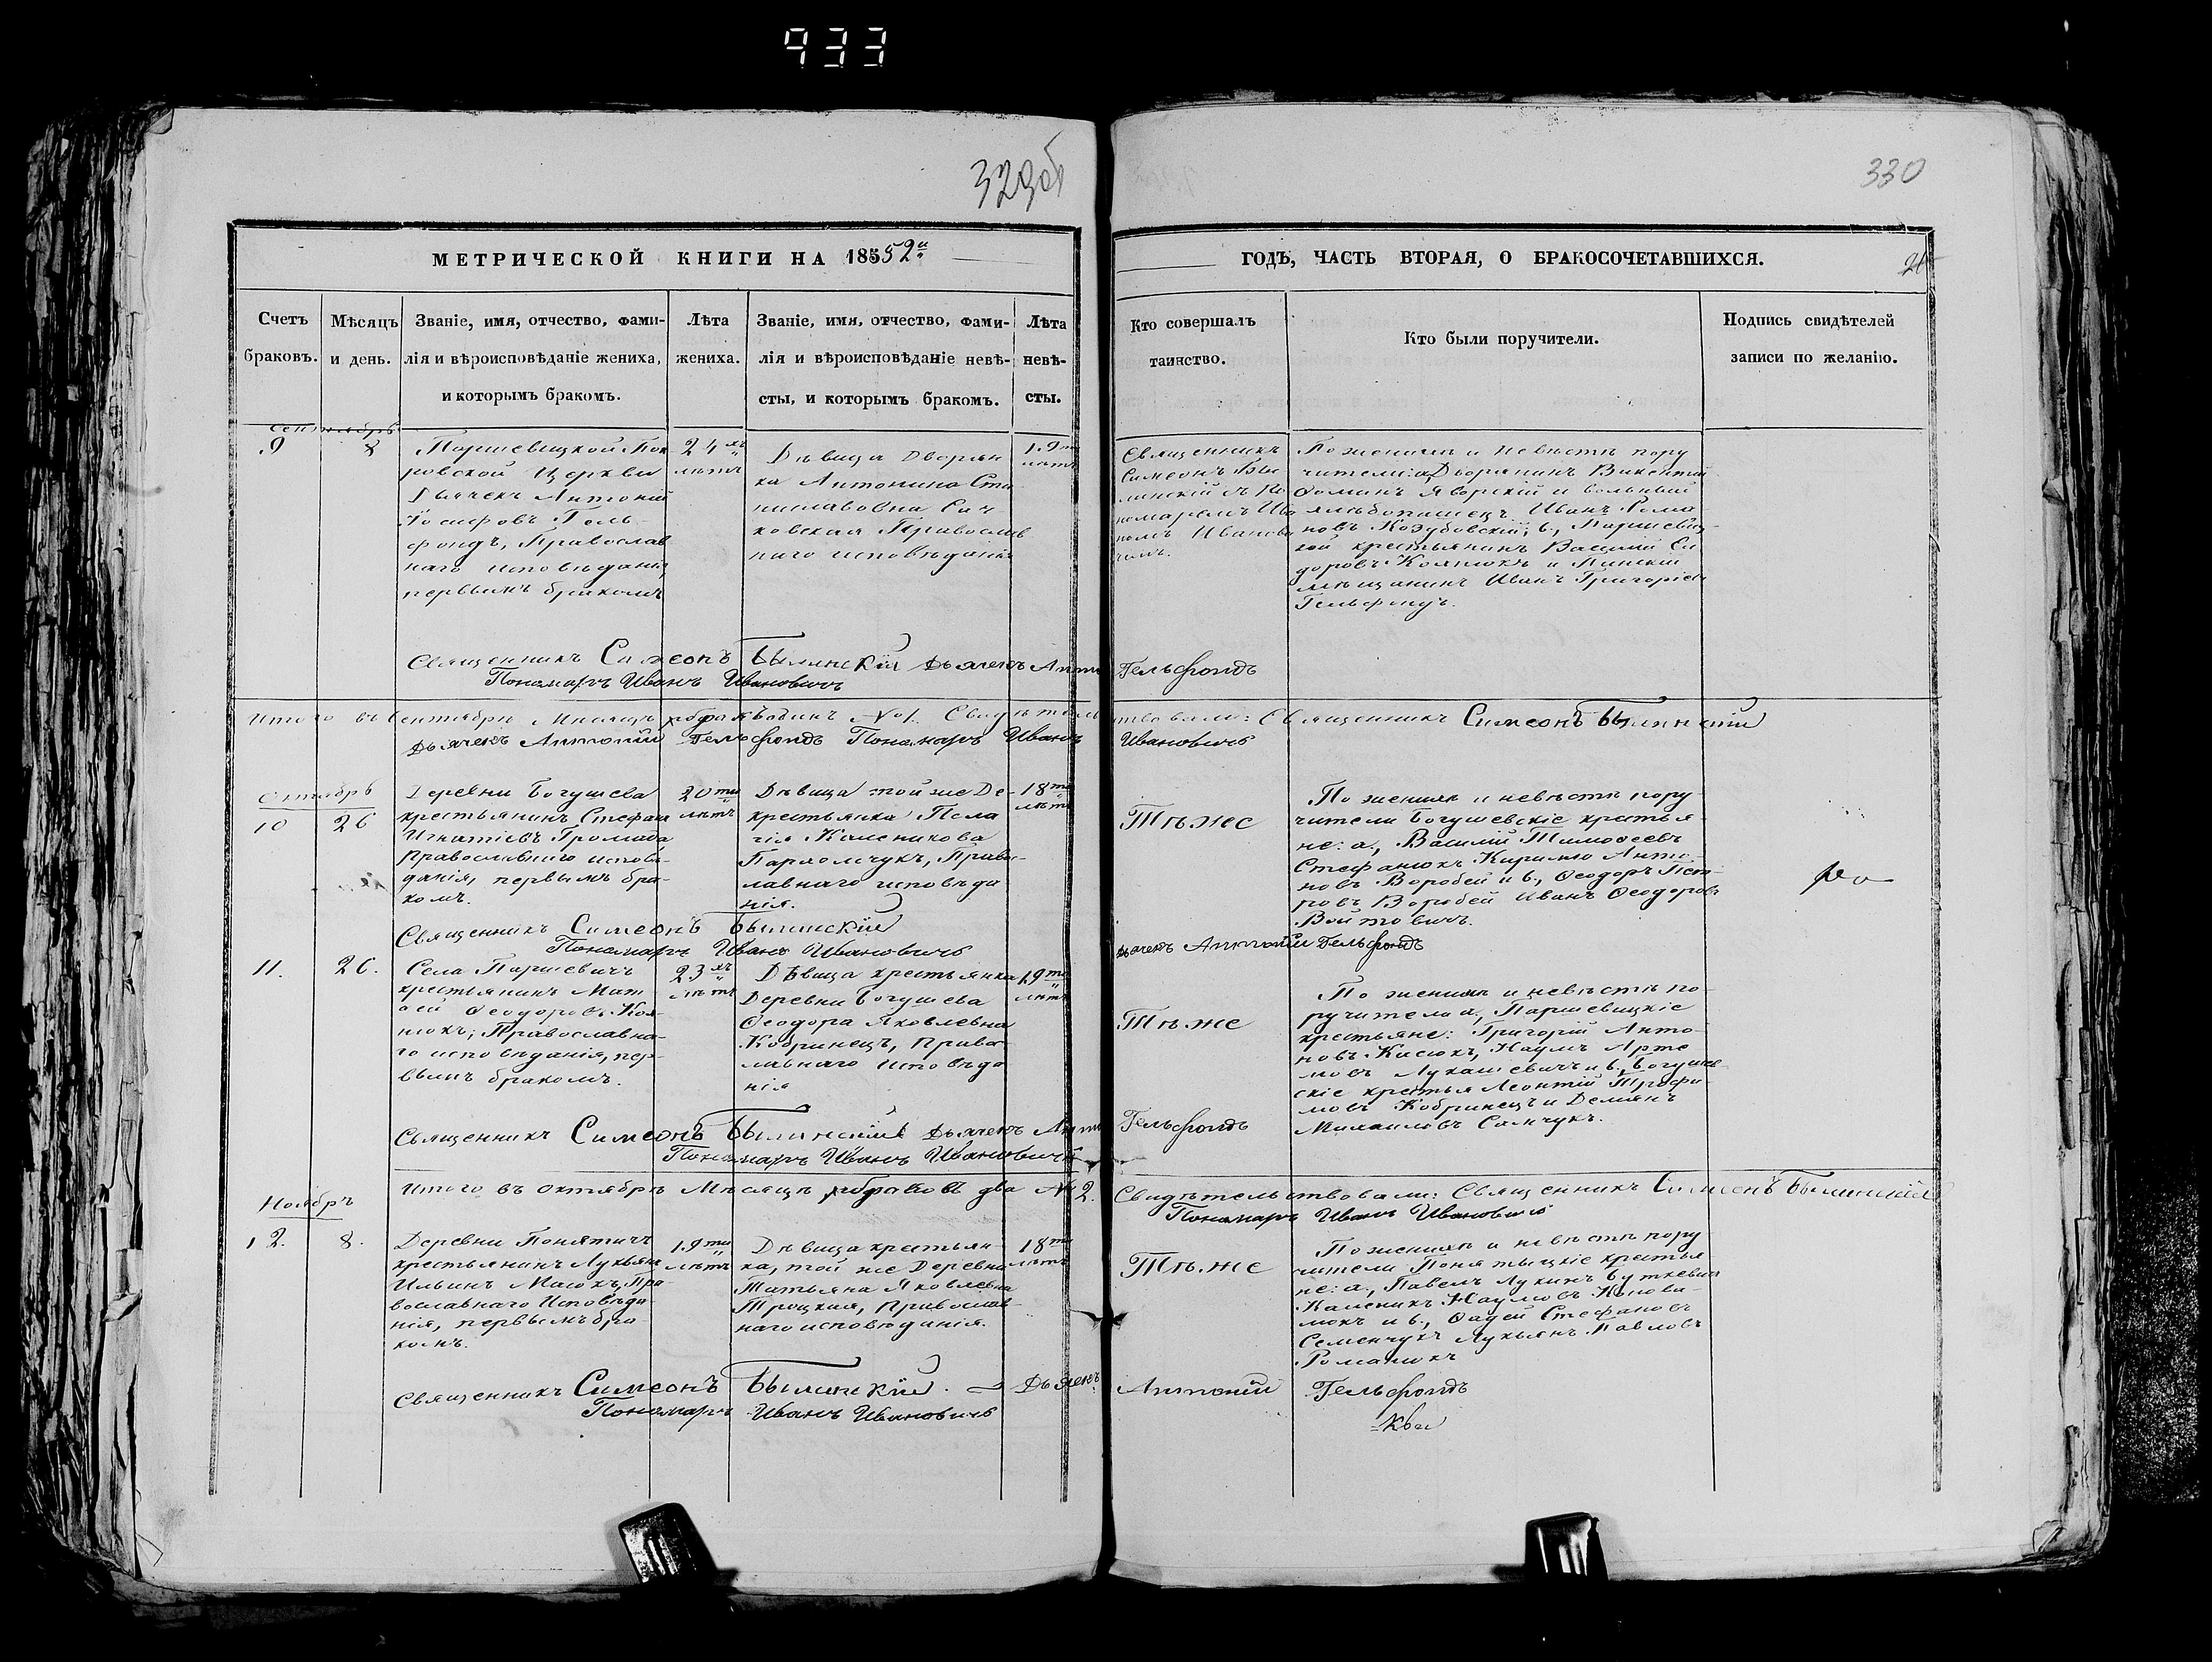 933
329об
330
МЕТРИЧЕСКОЙ КНИГИ НА 185 52
ГОДЪ, ЧАСТЬ ВТОРАЯ, О БРАКОСОЧЕТАВШИХСЯ.
Счетъ браковъ.
Мѣсяцъ и день.
Званіе, имя, отчество, фами-
лія и вѣроисповѣданіе жениха,
и которымъ бракомъ.
Лѣта
жениха.
Званіе, имя, отчество, фами-
лія и вѣроисповѣданіе невѣ-
сты, и которымъ бракомъ.
Лѣта
невѣ-
сты.
Кто совершалъ
таинство.
Кто были поручители.
Подпись свидѣтелей
записи по желанію.
Сентябрь
9
8
Паршевицкой Пок
ровской Церкви
Дьячекъ Антоній
Іосифовъ Гель-
фондъ, Православ
наго исповѣданія,
первымъ бракомъ
24хъ
лѣтъ
Дѣвица Дворян
ка Антонина Ста
ниславовна
ковская Православ
наго исповѣданія
19ти
лѣтъ
Священникъ
Симеонъ Бы
линскій съ По
номаремъ Ива
номъ Иванови
чемъ.
По женихѣ и невѣстѣ пору
чители: а, Дворянинъ Викентій
Ѳоминъ Яворскій и вольный
хлѣбопашецъ Иванъ Рома
новъ Козубовскій; в, Паршевиц-
кой крестьянинъ Василій Си
доровъ Колпюкъ и Пинскій
мѣщанинъ Иванъ Григорьевъ
Гельфондъ.
Священникъ Симеонъ Былинскій Дьячекъ Анто Гельфондъ
Пономарь Иванъ Ивановичъ
Итого въ Сентябрѣ Мѣсяцѣ бракъ одинъ №1. Свидѣтельствовали: Священникъ Симеонъ Былинскій
Дьячекъ Антоній Гельфондъ Пономарь Иванъ Ивановичъ
Октябрь
10
26
Деревни Богушева
крестьянинъ Стефанъ
Игнатіевъ Громада
Православнаго исповѣ-
данія, первымъ бра-
комъ.
20ти
лѣтъ
Дѣвица той же Де-
крестьянка Пела
гія Каленикова
Пархомчукъ, Право-
лавнаго исповѣда
нія.
18ти
лѣтъ
Тѣ.же
По женихѣ и невѣстѣ пору-
чители Богушевскіе крестья-
не: а, Василій Тимоѳеевъ
Стефанюкъ Кирилло Анто-
новъ Воробей и в, Ѳеодоръ Пет-
ровъ Воробей Иванъ Ѳеодоровъ
Войтовичъ.
Священникъ Симеонъ Былинскій
Пономарь Иванъ Ивановичъ
Дьячекъ Антоній Гельфондъ
11.
26.
Села Паршевичъ
крестьянинъ Мат
ѳей Ѳеодоровъ Кол-
пюкъ; Православна-
го исповѣданія, пер-
вымъ бракомъ.
23хъ
лѣтъ
Дѣвица крестьянка
Деревни Богушева
Ѳеодора Яковлевна
Кобринецъ, Право-
лавнаго исповѣда
нія
19ти
лѣтъ
Тѣ.же
По женихѣ и невѣстѣ по-
ручители а, Паршевицкіе
крестьяне: Григорій Анто-
новъ Касюкъ, Наумъ Арте
мовъ Лукашевичъ и в, Богушев
скіе крестья Леонтій Трофи-
мовъ Кобринецъ и Деміянъ
Михаиловъ Самчукъ.
Священникъ Симеонъ Былинскій Дьячекъ Анто Гельфондъ
Пономарь Иванъ Ивановичъ
Итого въ Октябрѣ Мѣсяцѣ браковъ два №2. Свидѣтельствовали: Священникъ Симеонъ Былинскій
Пономарь Иванъ Ивановичъ
Ноябрь
12.
8.
Деревни Понятичъ
крестьянинъ Лукьянъ
Ильинъ Масюкъ, Пра-
вославнаго Исповѣда-
нія, первымъ бра-
комъ.
19ти
лѣтъ
Дѣвица крестьян-
ка, той же Деревни
Татьяна Яковлевна
Троцкая, Православ-
наго исповѣданія.
18ти
лѣтъ
Тѣ.же
По женихѣ и невѣстѣ пору
чители Понятыцкіе крестья
не: а, Павелъ Лукинъ Буткевичъ
Каленикъ Наумовъ Конова-
люкъ и в, Ѳадей Стефановъ
Семенчукъ Лукьянъ Павловъ
Романюкъ
Священникъ Симеонъ Былинскій. Дьячекъ Антоній Гельфондъ
Пономарь Иванъ Ивановичъ